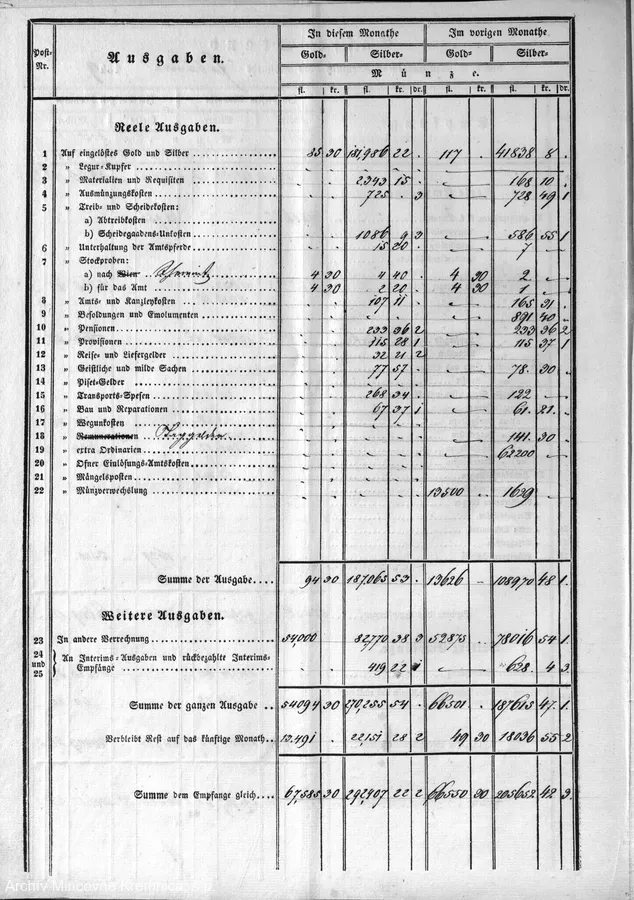 Post-Nr. Ausgaben. In diesem Monathe Im vorigen Monathe
Gold- Silber- Gold- Silber-
Münze.
fl. kr. fl. kr. dr. fl. kr. fl. kr. dr.
Reele Ausgaben.
1 Auf eingelöstes Gold und Silber 85 30 181,986 22 . 117 . 41838 8 .
2 „ Legur-Kupfer
3 „ Materialien und Requisiten 2343 15 . 168 10 .
4 „ Ausmünzungskosten 725 . 3 728 49 1
5 „ Treib- und Scheidekosten:
a) Abtreibkosten
b) Scheidegadens-Unkosten 1086 9 3 586 55 1
6 „ Unterhaltung der Amtspferde 15 20 . 7 .
7 „ Stockproben:
a) nach Wien 4 30 4 40 . 4 30 2 .
b) für das Amt 4 30 2 20 . 4 30 1 .
8 „ Amts- und Kanzleykosten 107 11 . 165 31 .
9 „ Besoldungen und Emolumenten 891 40 .
10 „ Pensionen 233 36 2 233 36 2
11 „ Provisionen 115 28 1 115 37 1
12 „ Reise- und Liefergelder 32 21 2
13 „ Geistliche und milde Sachen 77 57 . 78 30 .
14 „ Piset-Gelder
15 „ Transports-Spesen 268 34 122 .
16 „ Bau und Reparationen 67 37 1 61 21 .
17 „ Wegunkosten
18 „ Remunerationen Taggelder 141 30 .
19 „ extra Ordinarien 62200 .
20 „ Ofner Einlösungs-Amtskosten
21 „ Mängelsposten
22 „ Münzverwechslung 13500 . 1629 .
Summe der Ausgabe 94 30 187,065 53 . 13626 - 108970 48 1
Weitere Ausgaben.
23 In andere Verrechnung 54,000 82,770 38 3 52875 . 78016 54 1
24 und 25 An Interims-Ausgaben und rückbezahlte Interims-
Empfänge 419 22 1 628 4 3
Summe der ganzen Ausgabe 54094 30 270,255 54 . 66501 . 187615 47 1
Verbleibt Rest auf das künftige Monath 13,491 . 22,151 28 2 49 30 18036 55 2
Summe dem Empfange gleich 67,585 30 292,407 22 2 66550 30 205652 42 3
Archiv Mincovne Kremnica